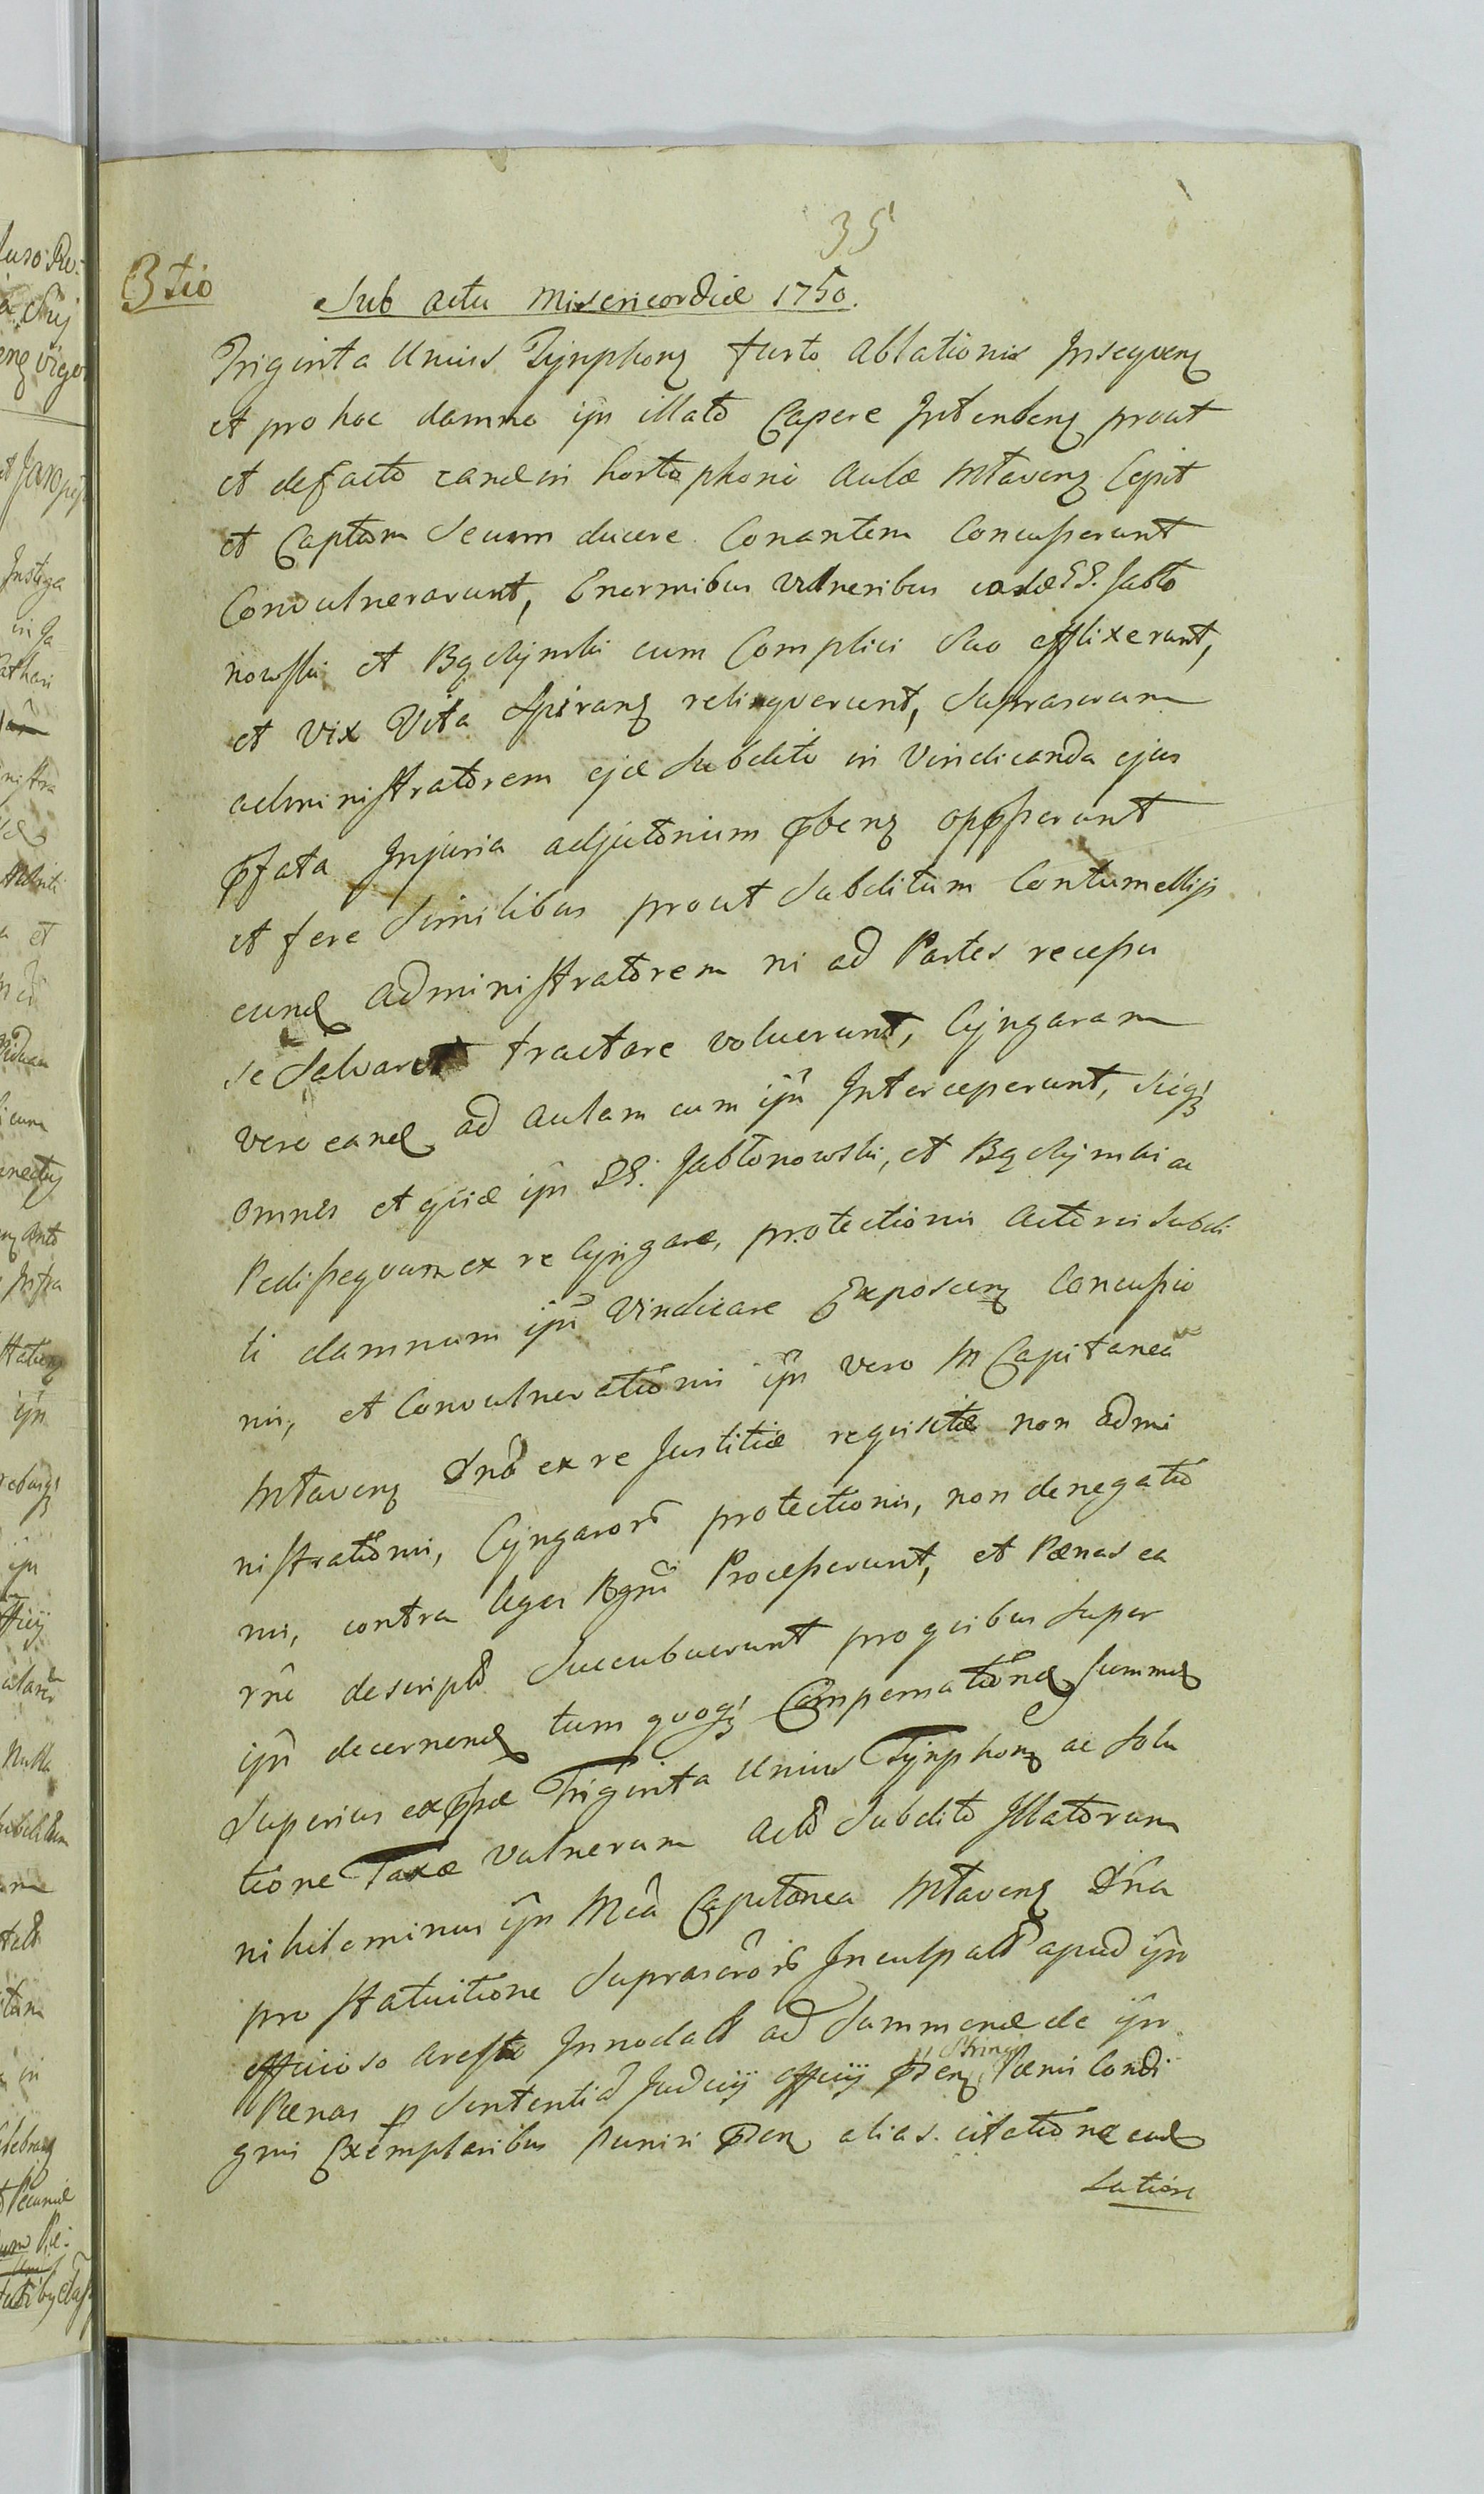 35
3tio
Sub actu Misericordiæ 1750.
Triginta Unius Tÿnphonʒ furto Ablationis Inseqvenʒ
et pro hoc damno ijn illato Capere Intendenʒ prout
et defacto eand in hortophonio Aulæ Mtavenʒ Cepit
et Captam Secum ducere Conantem Concusserunt
Convulnerarunt, Enormibus Vulneribus SS. Jabło
nowski et cum Complici Suo afflixerunt,
et Vix Vita Spiranʒ relinqverunt, Suprascram
administratorem ejæ Subdito in Vindicanda ejus
pfata Injuria adjutorium pbenʒ oppsserunt
et fere Similibus prout Subditum Contumellijs
eund Administratorem ni ad Partes recepsu
se Salvaret tractare voluerunt, Cÿngaram
vero eand ad Aulam cum ijn Interceperunt, Sicqʒ
omnes et qvie ijn SS. Jabłonowski, et ac
Pedissequum ex re Cÿngaræ, protectionis Actoris Subdi
ti damnum ijn Vindicare Exposcenʒ Concussio
nis, et Convulnerationis ijn vero M Capitanea
Mtavenʒ Dna ex re Justitiæ reqvisitæ non admi
nistrationis, Cÿngarors protectionis, non denegatio
nis, contra leges Rgni Processerunt, et Pænas ea
rne descriptas Succubuerunt pro qvibus Super
ijn decernend tum qvoqʒ Compensatione Summæ
Superius expssæ Triginta Unius Tÿnphonʒ ac Solu
tione Taxæ Vulnerum Acto Subdito Illatorum
nihilominus ijn Mca Capitanea Mtavenʒ Dna
pro Statuitione Suprascrors Inculpats apud ijn
officioso Aresto Innodats ad Summend de ijn
Pænas p Sententia Judicij officij Pdenʒ Stringi Pænis Condi
gnis Exemplaribus Puniri Pdenʒ alias. citatione ead
Latiore